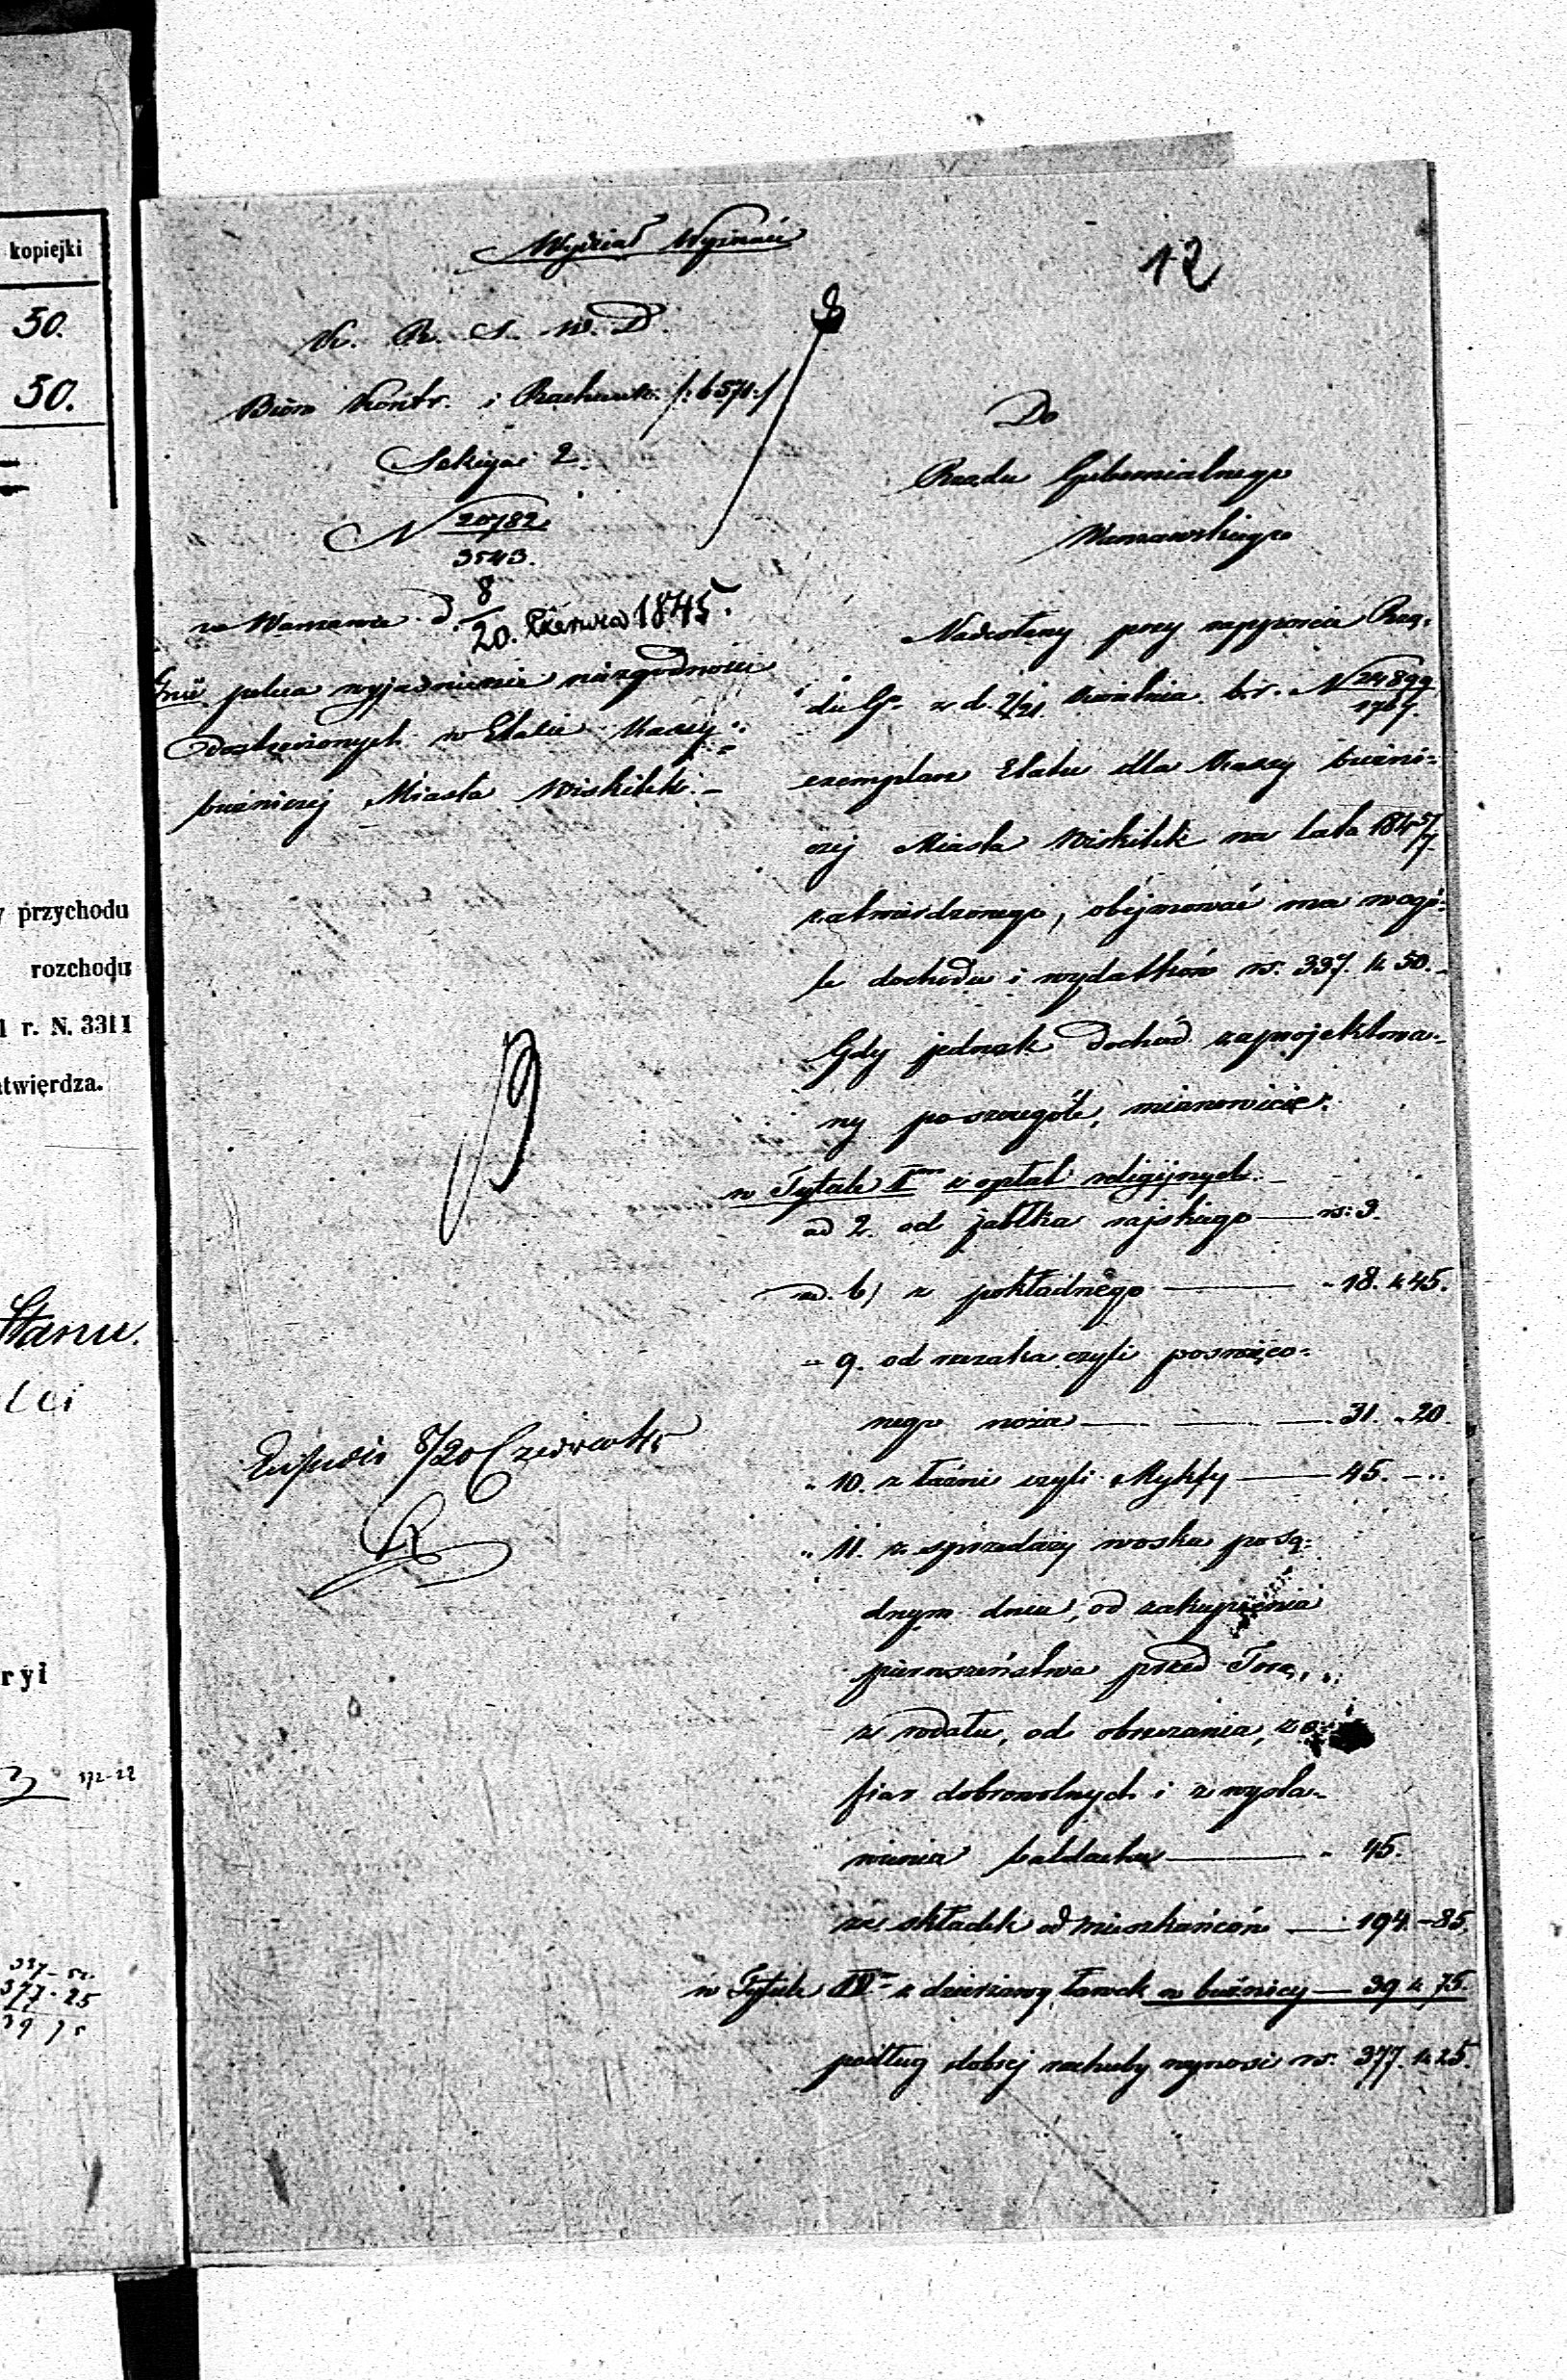 kopiejki
50.
50.
przychodu
rozchodu
r. N. 3311
twierdza.
Stanu.
ryl
172-22
377-25
Wydział Wyznań
12
K. R. S. W. D.
Biuro Kontr. i Rachunk. /:6571:/
Sekcya 2.
N 20782
3543.
w Warszawie d. 8/20. Czerwca 1845.
wyjaśnienie niezgodności
Dostrzeżonych w Etacie Kassy
bużniczej Miasta Wiskitek.
Expedio 8/20 Czerwca 45
Do
Rządu Gubernialnego
Warszawskiego
Nadesłany przy rapporcie Rzą-
du Gu. z d. 9/21. Kwietnia b.r. N 24899
exemplarz Etatu dla Kassy bużni-
czej Miasta Wiskitek na lata 1845/7
zatwierdzonego, obejmować ma wogó-
le dochodu i wydatków rs. 337. k 50.
Gdy jednak dochód zaprojektowa-
ny poszczególe, mianowicie:
w Tytule II z opłat religijnych.
ad 2. od jabłka rajskiego — rs: 3.
ad. 6) z pokładnego — „ 18. k 45.
„ 9. od rzezaka czyli poświęco-
nego noża — 31. „ 20.
„ 10. z łaźni czyli Mykfy — 45. —
„ 11. z sprzedaży wosku po są-
dnym dniu, od zakupienia
pierwszeństwa przed Torą,
z rodału, od obrzezania, z o-
fiar dobrowolnych i z wysta-
wienia baldachu — „ 45.
ze składek od mieszkańców — 194. - 85.
w Tytule IV z dzierżawy ławek w bużnicy — 39 k 75.
podług dobrej rachuby wynosi rs. 377. k 25.